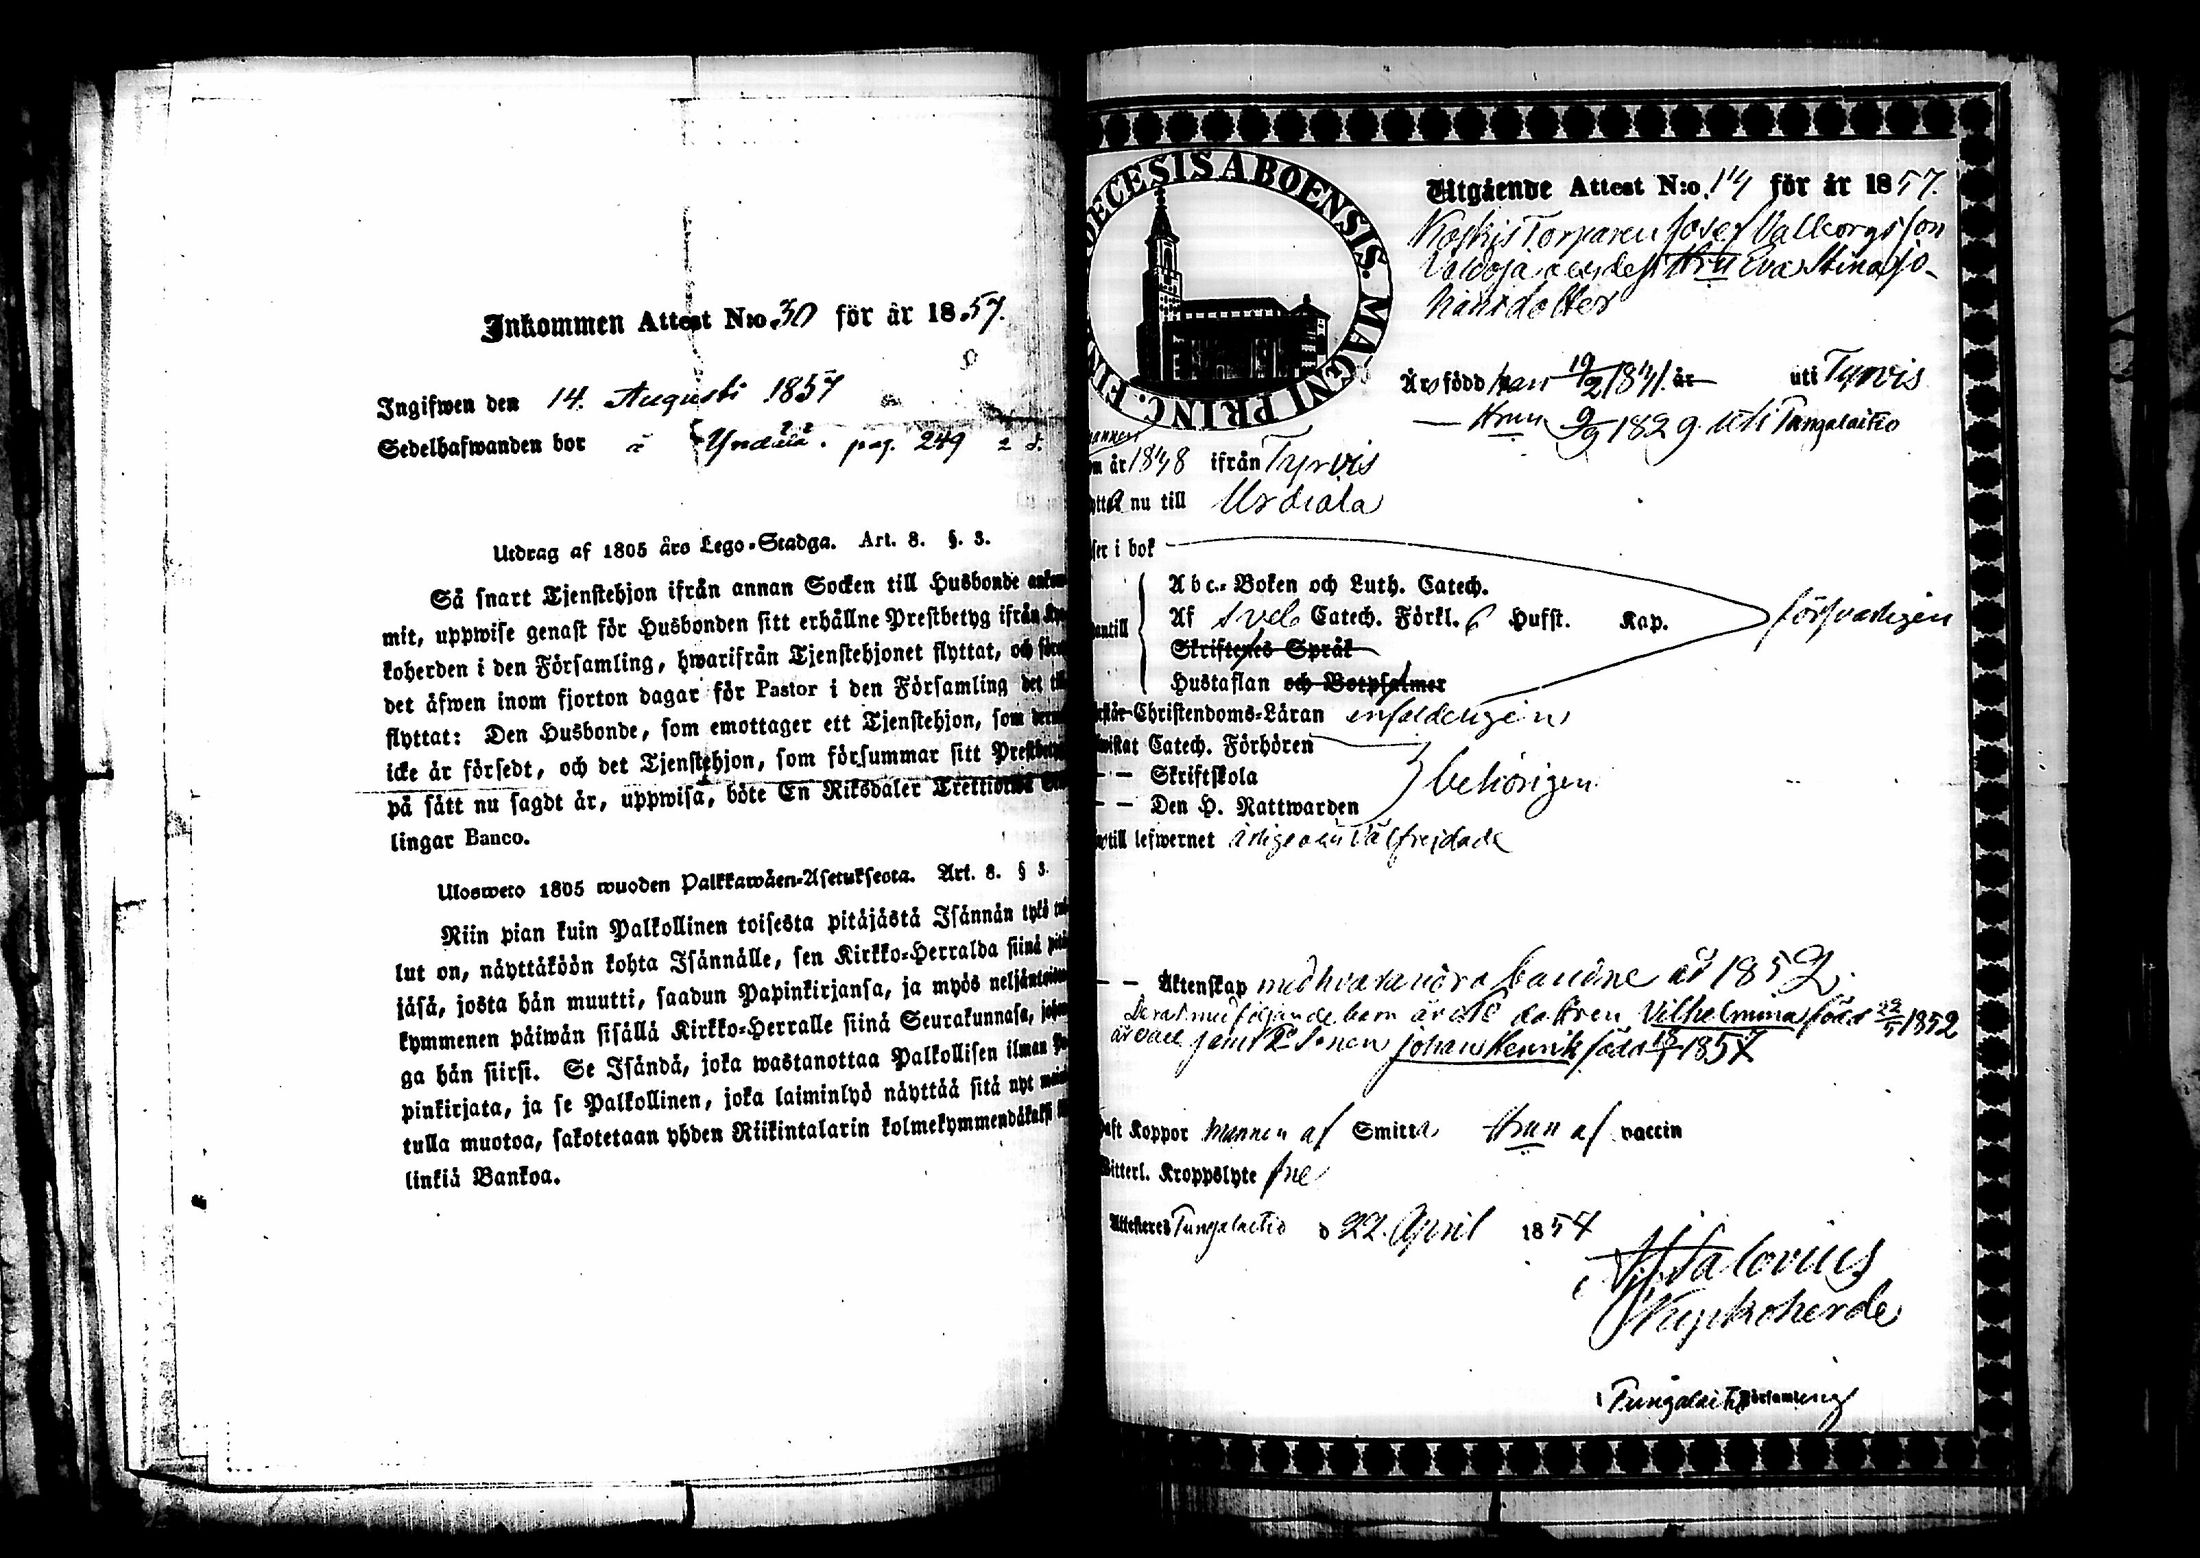 Inkommen Attest N:o 30 för år 1857.
Ingifwen den 14. Augusti 1857
Sedelhafwanden bor à pag. 249
Utdrag af 1805 års Lego-Stadga. Art. 8. §. 3.
Så snart Tjenstehjon ifrån annan Socken till Husbonde ankom-
mit, uppwise genast för Husbonden sitt erhållne Prestbetyg ifrån Kyr-
koherden i den Församling, hwarifrån Tjenstehjonet flyttat, och före
det äfwen inom fjorton dagar för Pastor i den Församling det till
flyttat: Den Husbonde, som emottager ett Tjenstehjon, som dermed
icke är försedt, och det Tjenstehjon, som försummar sitt Prestbetyg
på sätt nu sagdt är, uppwisa, böte En Riksdaler Trettiotwå
lingar Banco.
Ulosweto 1805 wuoden Palkkawäen-Asetuksesta. Art. 8. § 3.
Niin pian kuin Palkollinen toisesta pitäjästä Isännän tykö
lut on, näyttäköön kohta Isännälle, sen Kirkko-Herralda siinä
jäsä, josta hän muutti, saadun Papinkirjansa, ja myös neljäntoista
kymmenen päiwän sisällä Kirkko-Herralle siinä Seurakunnasa,
ga hän siirsi. Se Isändä, joka wastanottaa Palkollisen ilman
pinkirjata, ja se Palkollinen, joka laiminlyö näyttää sitä nyt
tulla muotoa, sakotetaan yhden Riikintalarin kolmekymmendäkaksi
linkiä Bankoa.
ECESIS ABOENSIS. MAGNI PRINC. FIN
Utgående Attest N:o 14 för år 1857.
Torparen Josef Valborgsson
Hru Eva Stina Jo-
hansdotter
Äro född han 19/2 18 år uti Tyrvis
Hrun 9/9 1829 uti Pungalaitio
år 1848 ifrån Tyrvis
nu till Urdiala
i bok
Abc-Boken och Luth. Catech.
Af Sveb Catech. Förkl. 6 Husst. Kap. försvarligen
Skriftenes Språk
Hustaflan och Botpsalmer
Christendoms-Läran enfaldeligen
Catech. Förhören
— — Skriftskola behörigen
— — Den H. Nattwarden
till lefwernet ärlige och välfrejdade
— — Äktenskap med hvarandra år 1852.
följande barn dottren Vilhelmina född 22/5 1852
samt Sonen Johan Henrik född 18/1 1857
Koppor mannen af Smitta Hrun af vaccin
Witterl. Kroppslyte fria
Attesteres Pungalaitio d 22. April 1857
Salovius
Kyrkoherde
i Pungalaitio Församling